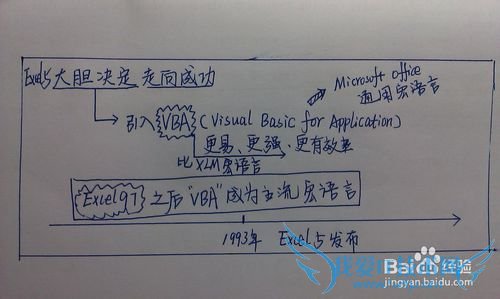 Excel5大胆决定 走向成功
Microsoft Office
通用宏语言
引入 VBA (Visual Basic for Application)
更易、更强、更有效率
比 XLM宏语言
Excel97 之后"VBA"成为主流宏语言
1993年 Excel5发布
Baidu经验
jingyan.baidu.com